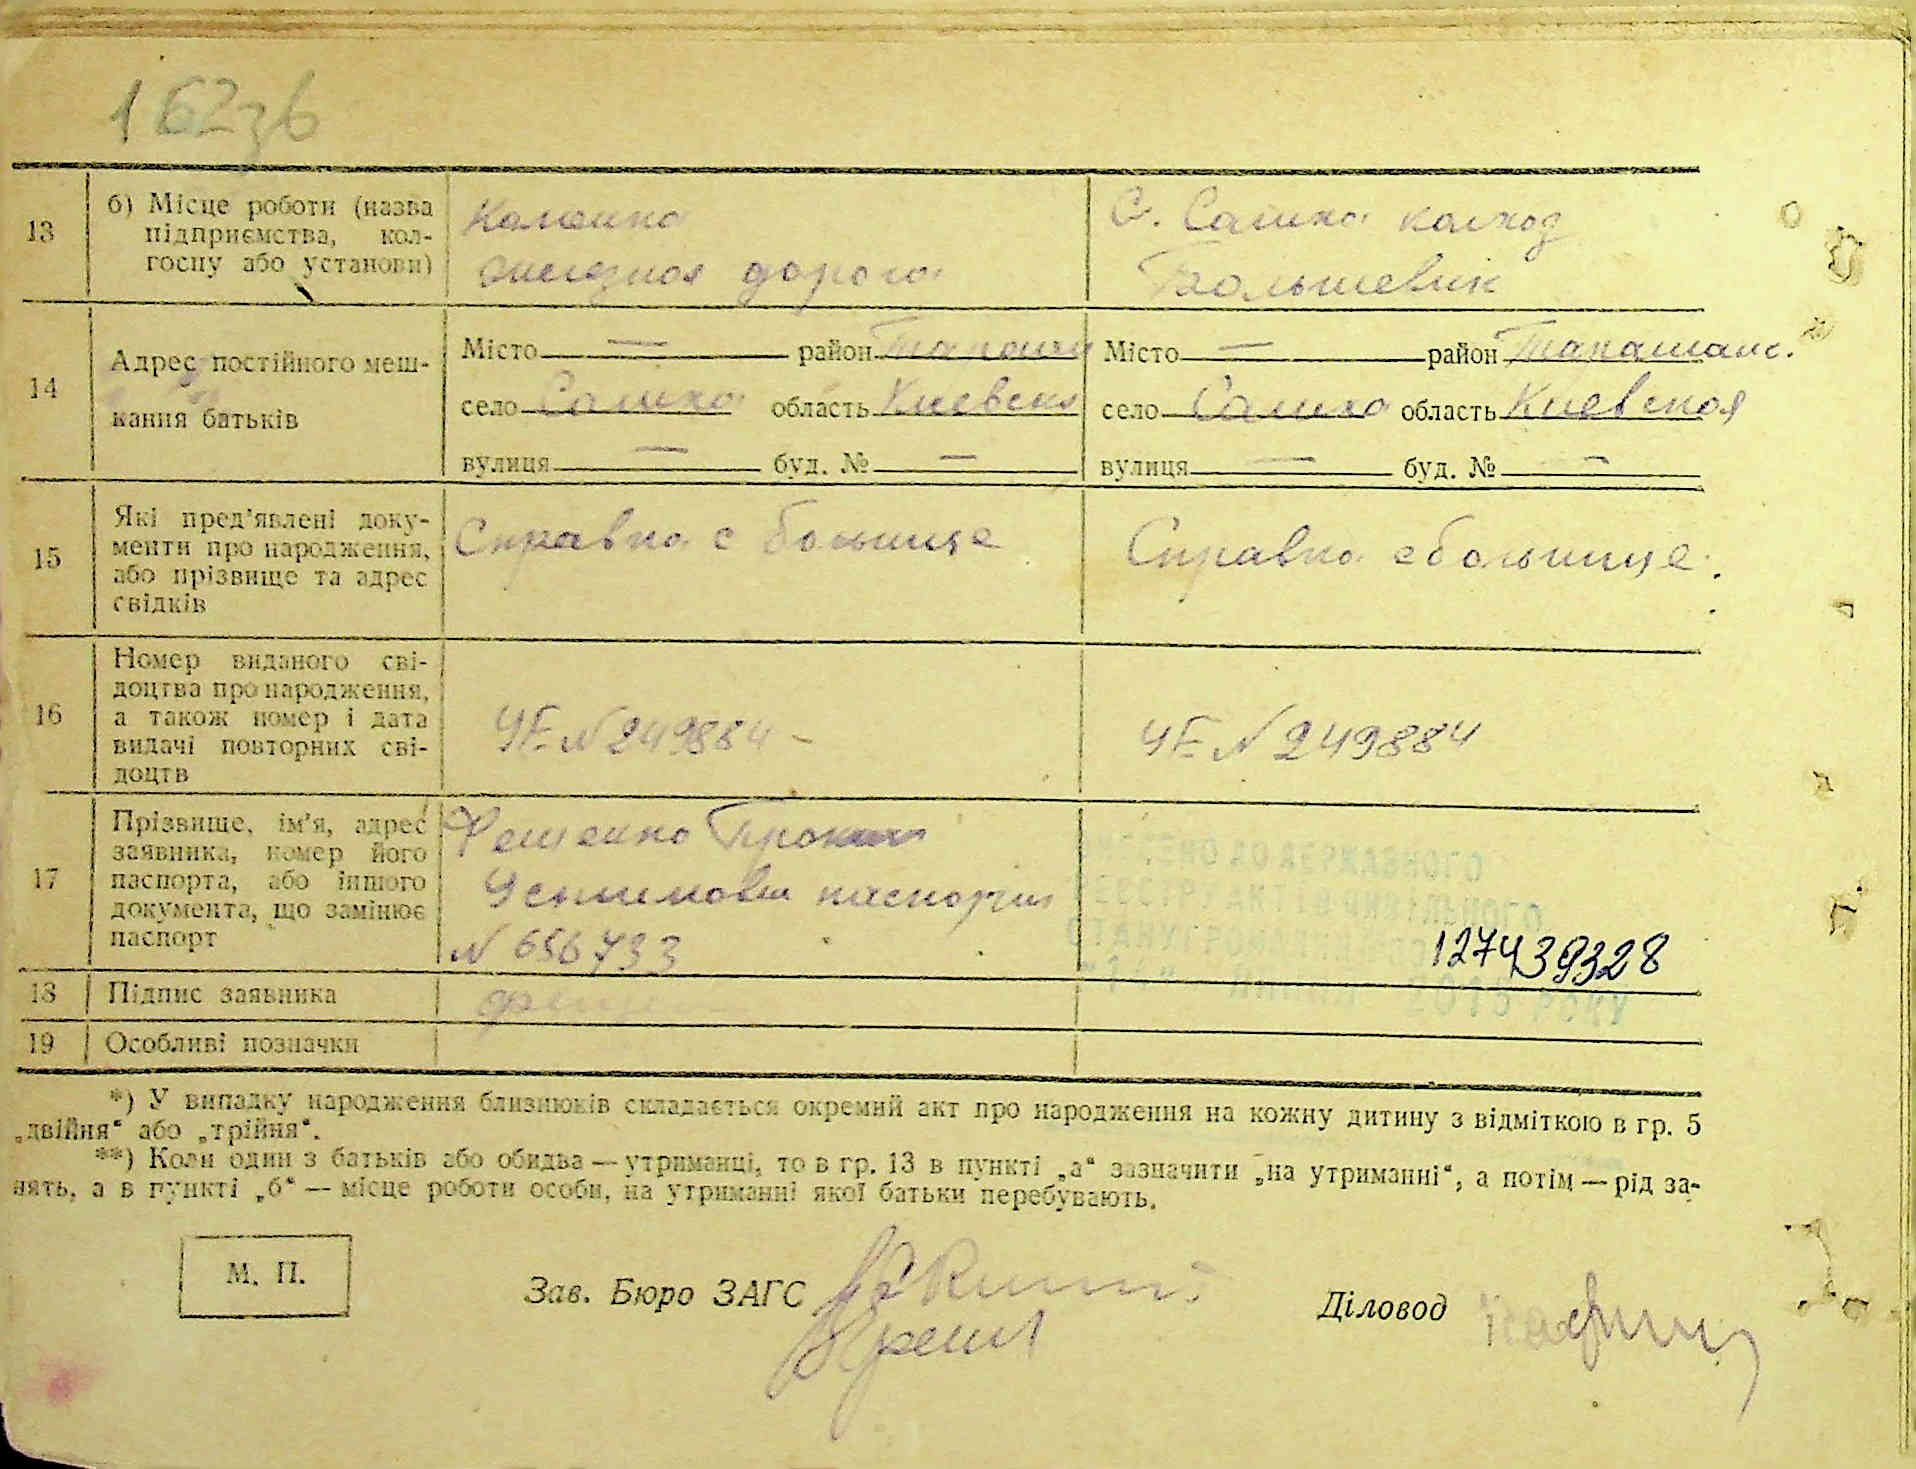 162зв
13
б) Місце роботи (назва
підприємства, кол-
госпу або установи)
дорога
с. Салиха колход
Большевик
14
Адрес постійного меш-
кання батьків
Місто — район
село Салиха область Киевска
вулиця — буд. № —
Місто — район Таращанс.
село Салиха область Киевская
вулиця — буд. № —
15
Які пред'явлені доку-
менти про народження,
або прізвище та адрес
свідків
Справка с больнице
Справка с больнице.
16
Номер виданого сві-
доцтва про народження,
а також номер і дата
видачі повторних сві-
доцтв
ЧЕ N 249884 –
ЧЕ N 249884
17
Прізвище, ім'я, адрес
заявника, номер його
паспорта, або іншого
документа, що замінює
паспорт
N 656733
127439328
18
Підпис заявника
19
Особливі позначки
*) У випадку народження близнюків складається окремий акт про народження на кожну дитину з відміткою в гр. 5
„двійня“ або „трійня“.
**) Коли один з батьків або обидва — утриманці, то в гр. 13 в пункті „а“ зазначити „на утриманні“, а потім — рід за-
нять, а в пункті „б“ — місце роботи особи, на утриманні якої батьки перебувають.
М. П.
Зав. Бюро ЗАГС
Діловод